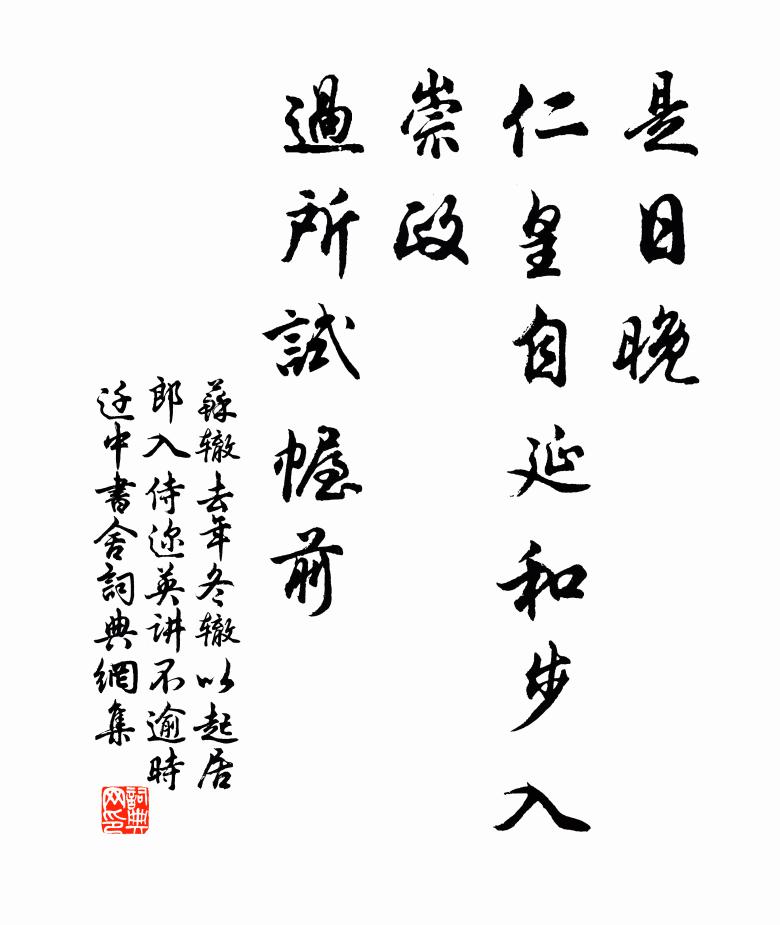 是日晚
仁皇自延和步入
崇政
過所試幄前
蘇辙去年冬辙以起居
郎入侍迩英讲不逾時
迁中書舍詞典網集
詞典
网印